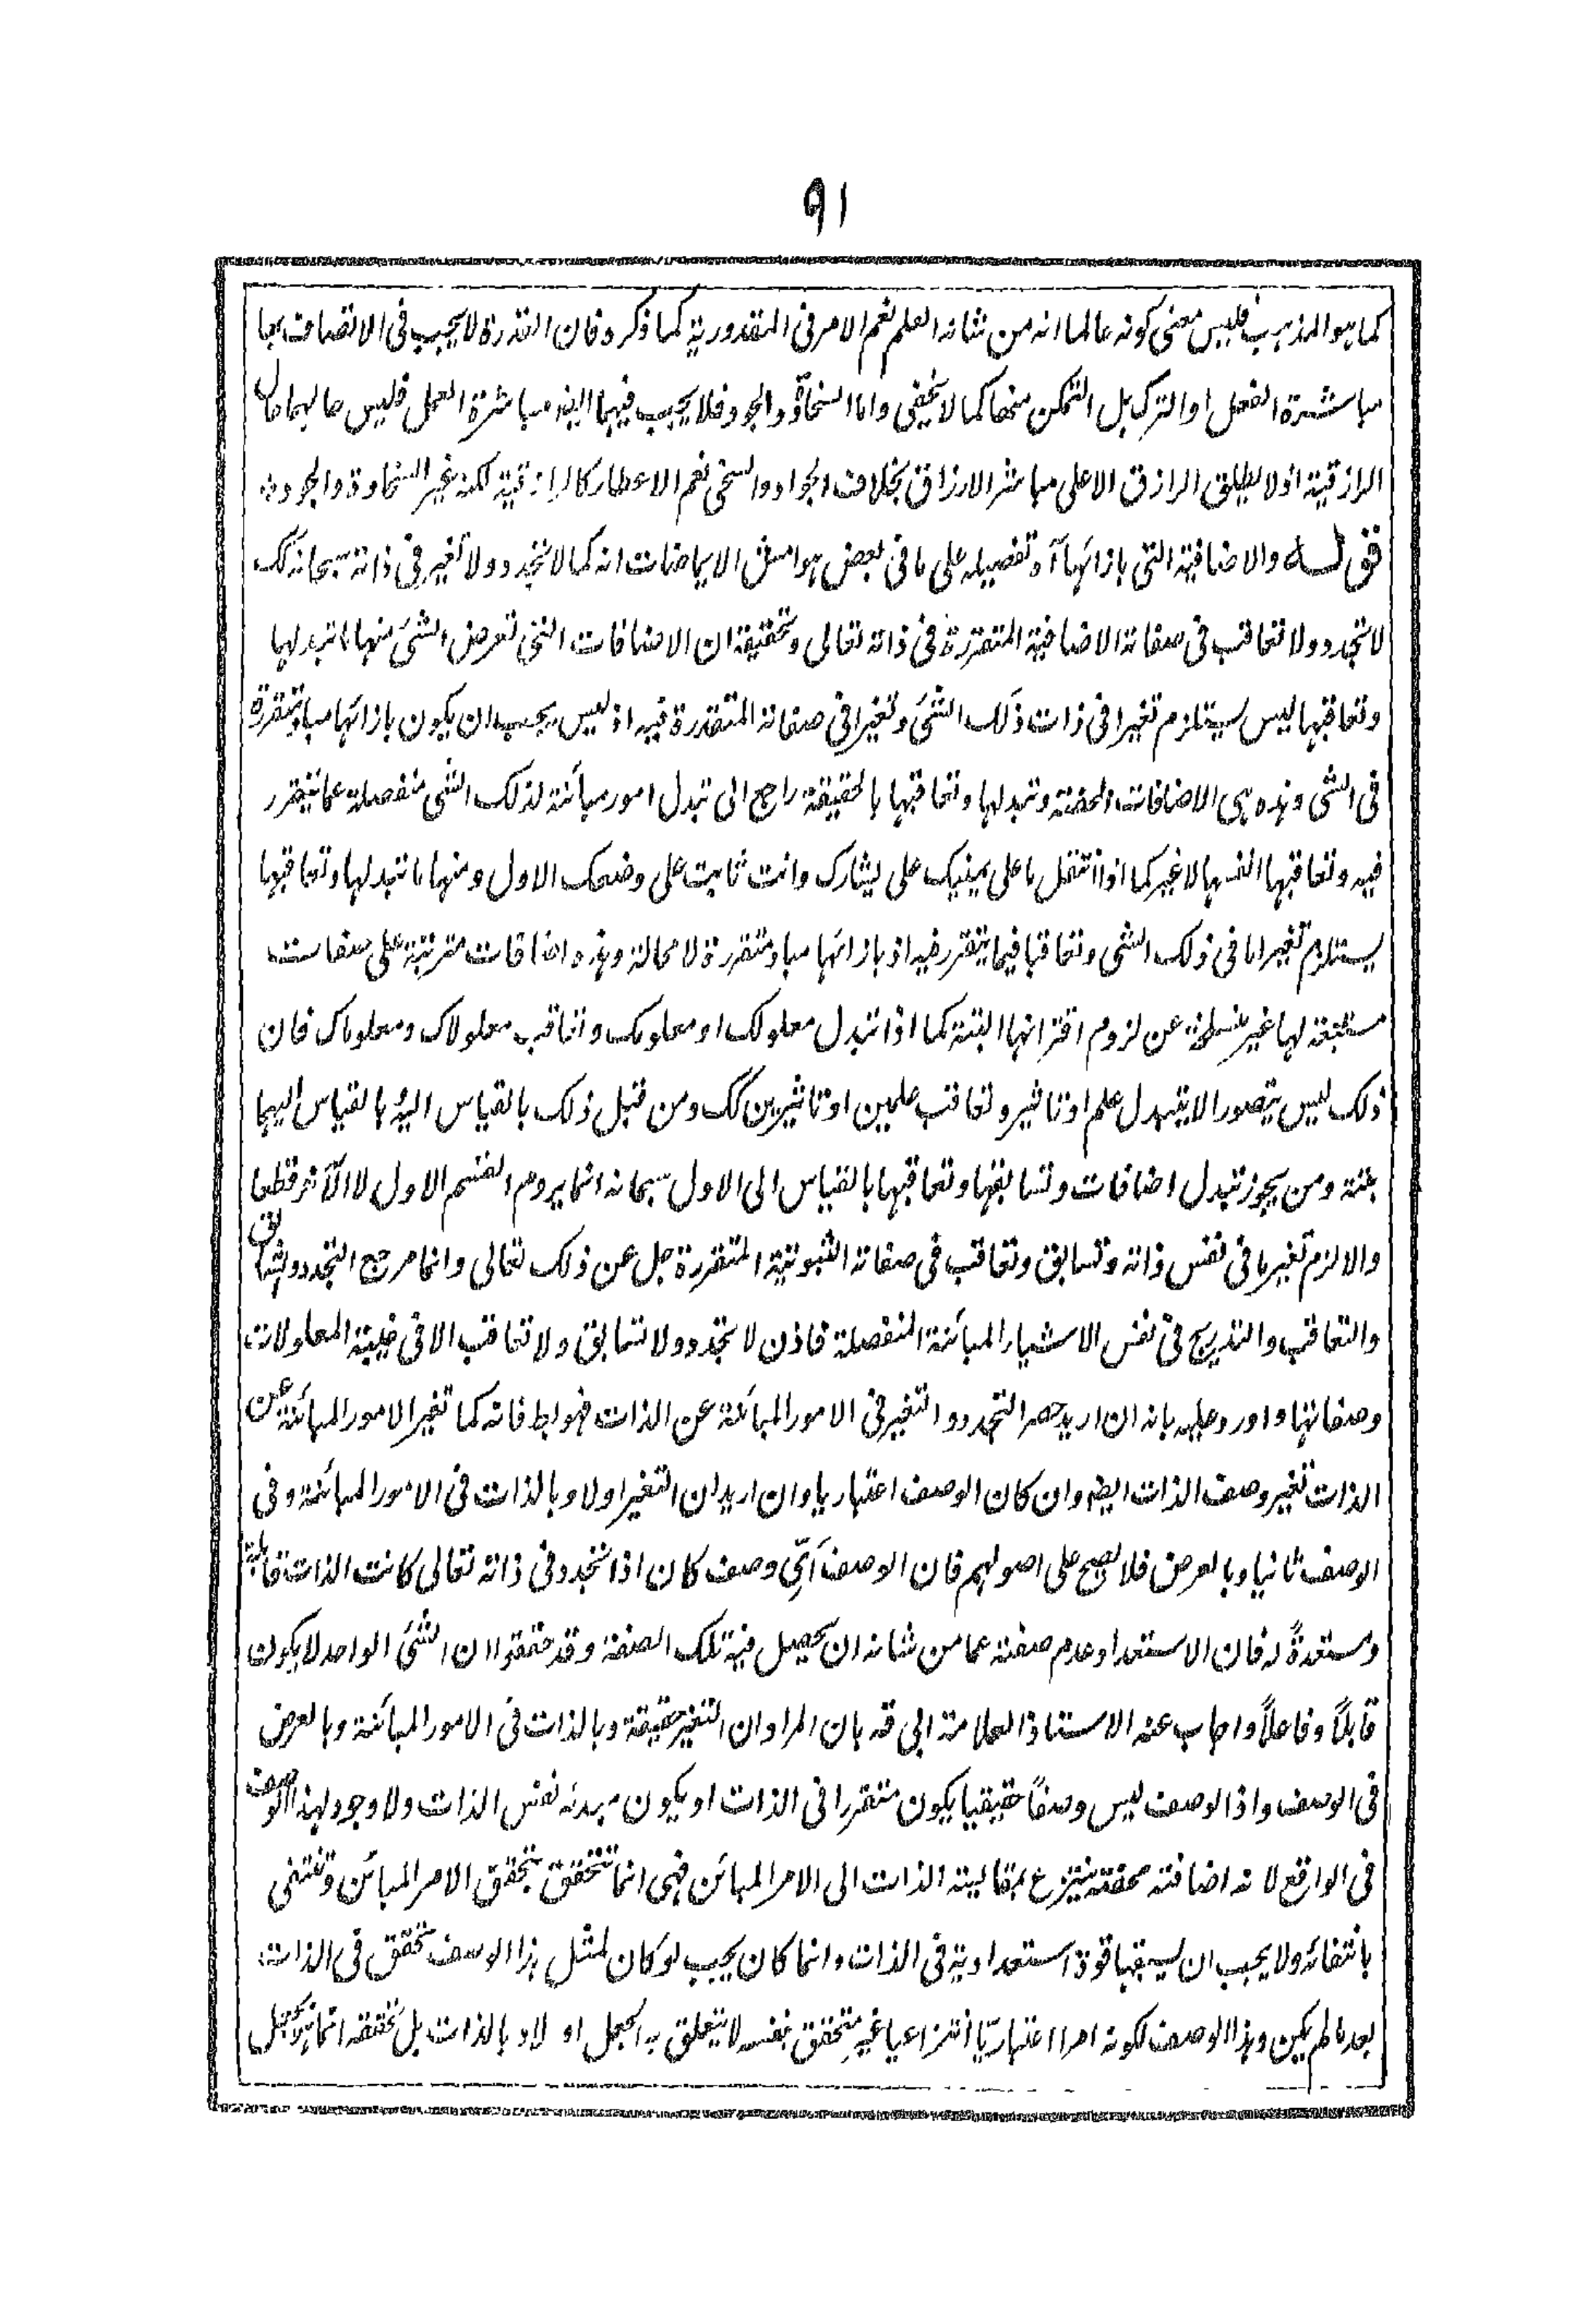 ٩١
كما هو المذهب فليس معنى كونه عالما انه من شانه العلم نعم الامر فى المقدورية كما ذكره فان القدرة لا يجب فى الاتصاف بها
مباشرة الفعل او الترك بل التمكن منهما كما لا يخفى واما السخاوة والجود فلا يجب فيهما ايضا مباشرة العمل فليس حالهما حال
الرازقية اذ لا يطلق الرازق الا على مباشر الارزاق بخلاف الجواد والسخى نعم الاعطاء كالرازقية لكنه غير السخاوة والجود
قوله والاضافية التى بازائها آه تفصيله على ما فى بعض هوامش الايماضات انه كما لا تجدد ولا تغير فى ذاته سبحانه كك
لا تجدد ولا تعاقب فى صفاته الاضافية المتقررة فى ذاته تعالى وتحقيقه ان الاضافات التى تعرض الشئ منها ما تبدلها
وتعاقبها ليس يستلزم تغيرا فى ذات ذلك الشئ وتغيرا فى صفاته المتقررة فيه اذ ليس يجب ان يكون بازائها مباد متقررة
فى الشى وهذه هى الاضافات المحضة وتبدلها وتعاقبها بالحقيقة راجع الى تبدل امور مبائنة لذلك الشى منفصلة عما يتقرر
فيه وتعاقبها انفسها لا غير كما اذا انتقل ما على يمينك على يسارك وانت ثابت على وضعك الاول ومنها ما تبدلها وتعاقبها
يستلزم تغيرا ما فى ذلك الشى وتعاقبا فيما يتقرر فيه اذ بازائها مباد متقررة لا محالة وهذه اضافات مترتبة على صفات
مستتبعة لها غير منسلخة عن لزوم اقترانها البتة كما اذا تبدل معلولك او معلومك وتعاقب معلولاك ومعلوماك فان
ذلك ليس يتصور الا بتبدل علم او تاثير وتعاقب علمين او تاثيرين كك ومن قبل ذلك بالقياس اليه وبالقياس اليهما
بتة ومن يجوز تبدل اضافات وتسابقها وتعاقبها بالقياس الى الاول سبحانه انما يروم القسم الاول لا الآخر قطعا
والا لزم تغير ما فى نفس ذاته وتسابق وتعاقب فى صفاته الثبوتية المتقررة جل عن ذلك تعالى وانما مرجع التجدد والتسابق
والتعاقب والتدريج فى نفس الاشياء المبائنة المنفصلة فاذن لا تجدد ولا تسابق ولا تعاقب الا فى المعلولات
وصفاتها واورد عليه بانه ان اريد حصر التجدد والتغير فى الامور المبائنة عن الذات فهو باطل فانه كما تغير الامور المبائنة عن
الذات تغير وصف الذات ايضا وان كان الوصف اعتباريا وان اريد ان التغير اولا وبالذات فى الامور المبائنة وفى
الوصف ثانيا وبالعرض فلا يصح على اصولهم فان الوصف اىّ وصف كان اذا تجدد فى ذاته تعالى كانت الذات قابلة
ومستعدةً له فان الاستعداد عدم صفة عما من شانه ان يحصل فيه تلك الصفة وقد حققوا ان الشئ الواحد لا يكون
قابلاً وفاعلاً واجاب عنه الاستاذ العلامة ابى قه بان المراد ان التغير حقيقة وبالذات فى الامور المبائنة وبالعرض
فى الوصف واذ الوصف ليس وصفاً حقيقيا يكون متقررا فى الذات او يكون مبدئه نفس الذات ولا وجود لهذا الوصف
فى الواقع لانه اضافة محضة ينتزع بمقايسة الذات الى الامر المبائن فهى انما تتحقق بتحقق الامر المبائن وتنتفى
بانتفائه ولا يجب ان يسبقها قوة استعدادية فى الذات وانما كان يجب لو كان لمثل هذا الوصف تحقق فى الذات
بعد ما لم يكن وهذا الوصف لكونه امرا اعتباريّا انتزاعيا غير متحقق بنفسه لا يتعلق به الجعل او لا وبالذات بل تحققه انما هو بجعل